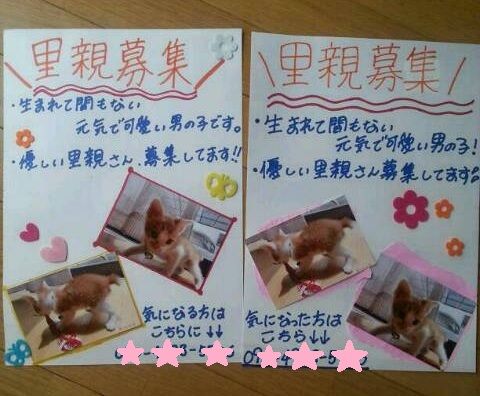 里親募集
・生まれて間もない
元気で可愛い男の子です。
・優しい里親さん、募集してます!!
気になる方は
こちらに↓↓
里親募集
・生まれて間もない
元気で可愛い男の子!
・優しい里親さん募集してます。
気になった方は
こちら↓↓